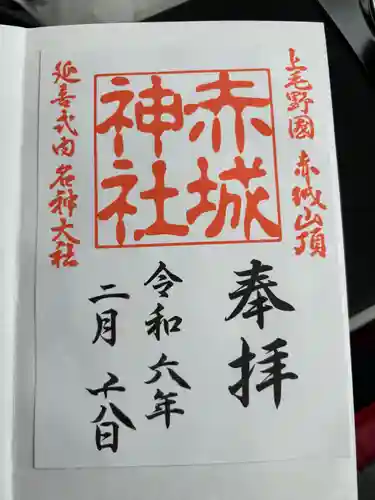 上毛野國 赤城山頂
赤城
神社
延喜式内 名神大社
奉拝
令和六年
二月 十八日